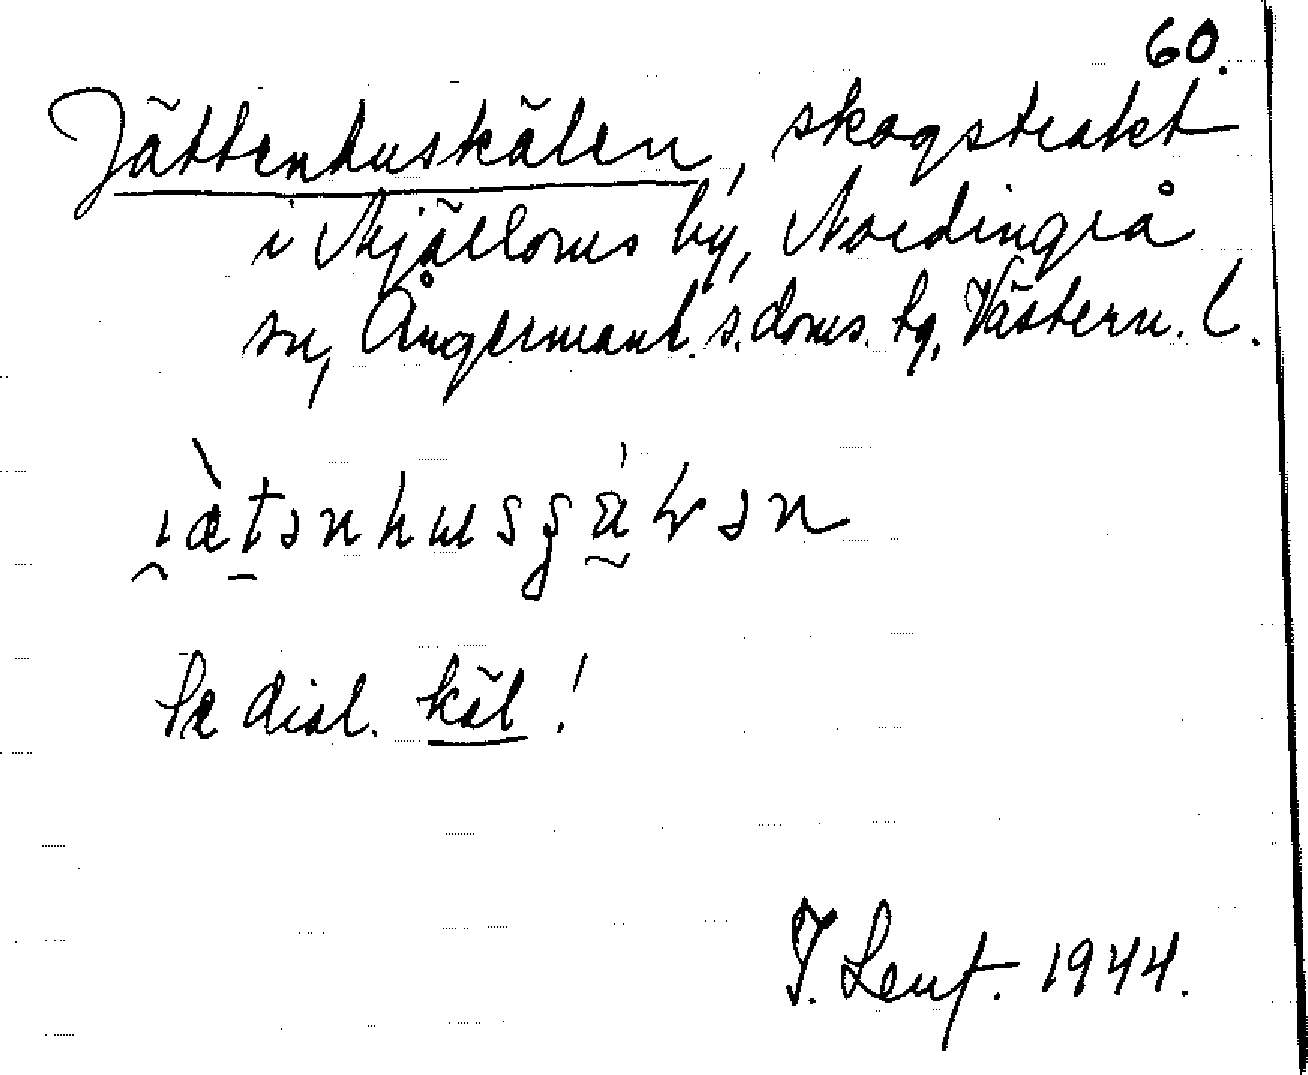 60.
Jättenhuskälen, skogstrakt
i Mjälloms by, Nordingrå
sn, Ångermanl. s. doms. tg, Västern. l.
i̯æ̀tənhusgä́lən
Se dial. käl!
1944.